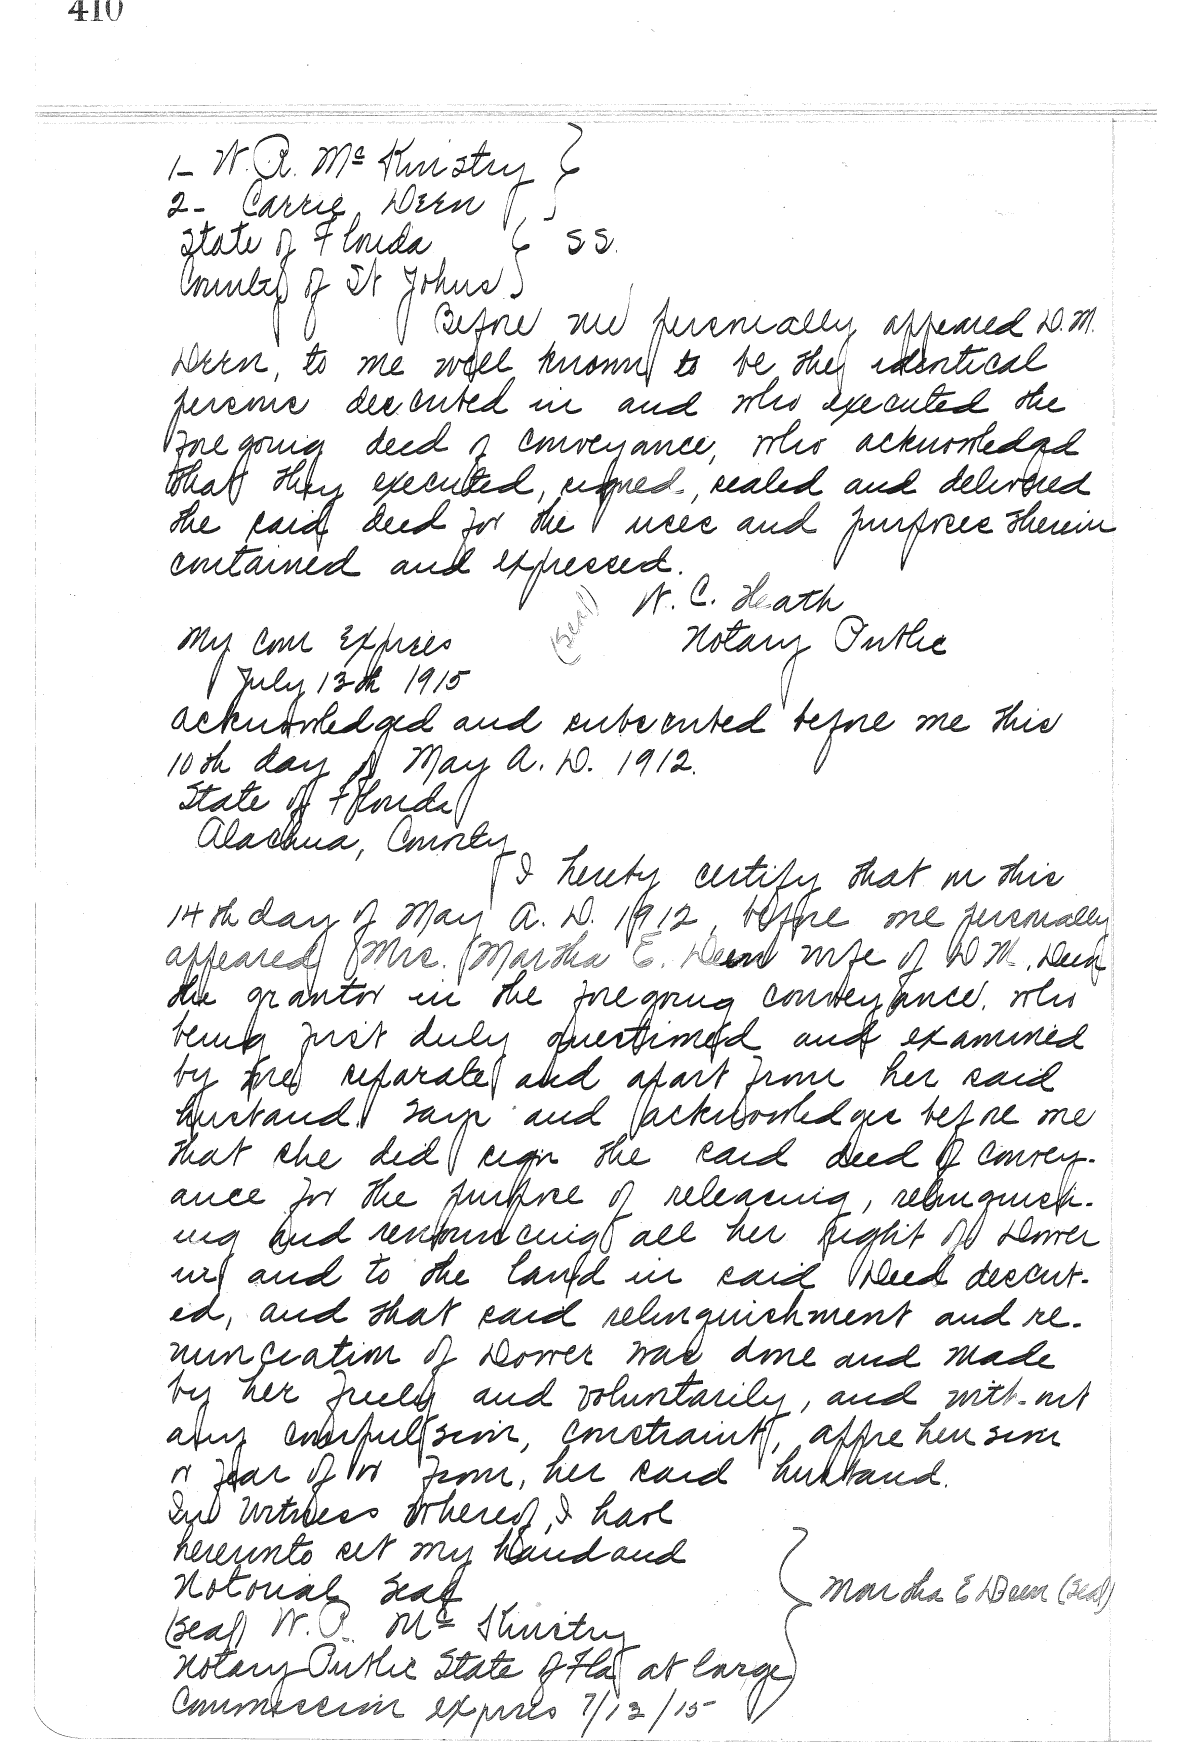 410
1- W. R. McKinstry
2- Carrie Deen
State of Florida } SS.
County of St Johns
Before me personally appeared D. M.
Deen, to me well known to be the identical
persons descubed in and who executed the
foregoing deed of conveyance, who acknowledged
that they executed, signed, sealed and delivered
the said deed for the uses and purposes therein
contained and expressed.
W. C. Heath
(Seal)
My Com Expires Notary Public
July 13th 1915
acknowledged and subscubed before me this
10th day of May A. D. 1912.
State of Florida
Alachua, County
I hereby certify that on this
14th day of May A. D. 1912, before me personally
appeared Mrs. Martha E. Deen wife of D. M. Deen
the grantor in the foregoing conveyance, who
being just duly questioned and examined
by me separate and apart from her said
husband, says and acknowledges before me
that she did sign the said deed of convey-
ance for the purpose of releasing, relinquish-
ing and renouncing all her right of Dower
in and to the land in said Deed descub-
ed, and that said relinquishment and re-
nunciation of Dower was done and made
by her freely and voluntarily, and with-out
any compulsion, constraint, apprehension
or fear of or from, her said husband.
In Witness Whereof, I have
hereunto set my hand and
Notorial Seal
Martha E Deen (Seal)
(Seal) W. R. McKinstry
Notary Public State of Fla at large
Commission expires 7/13/15